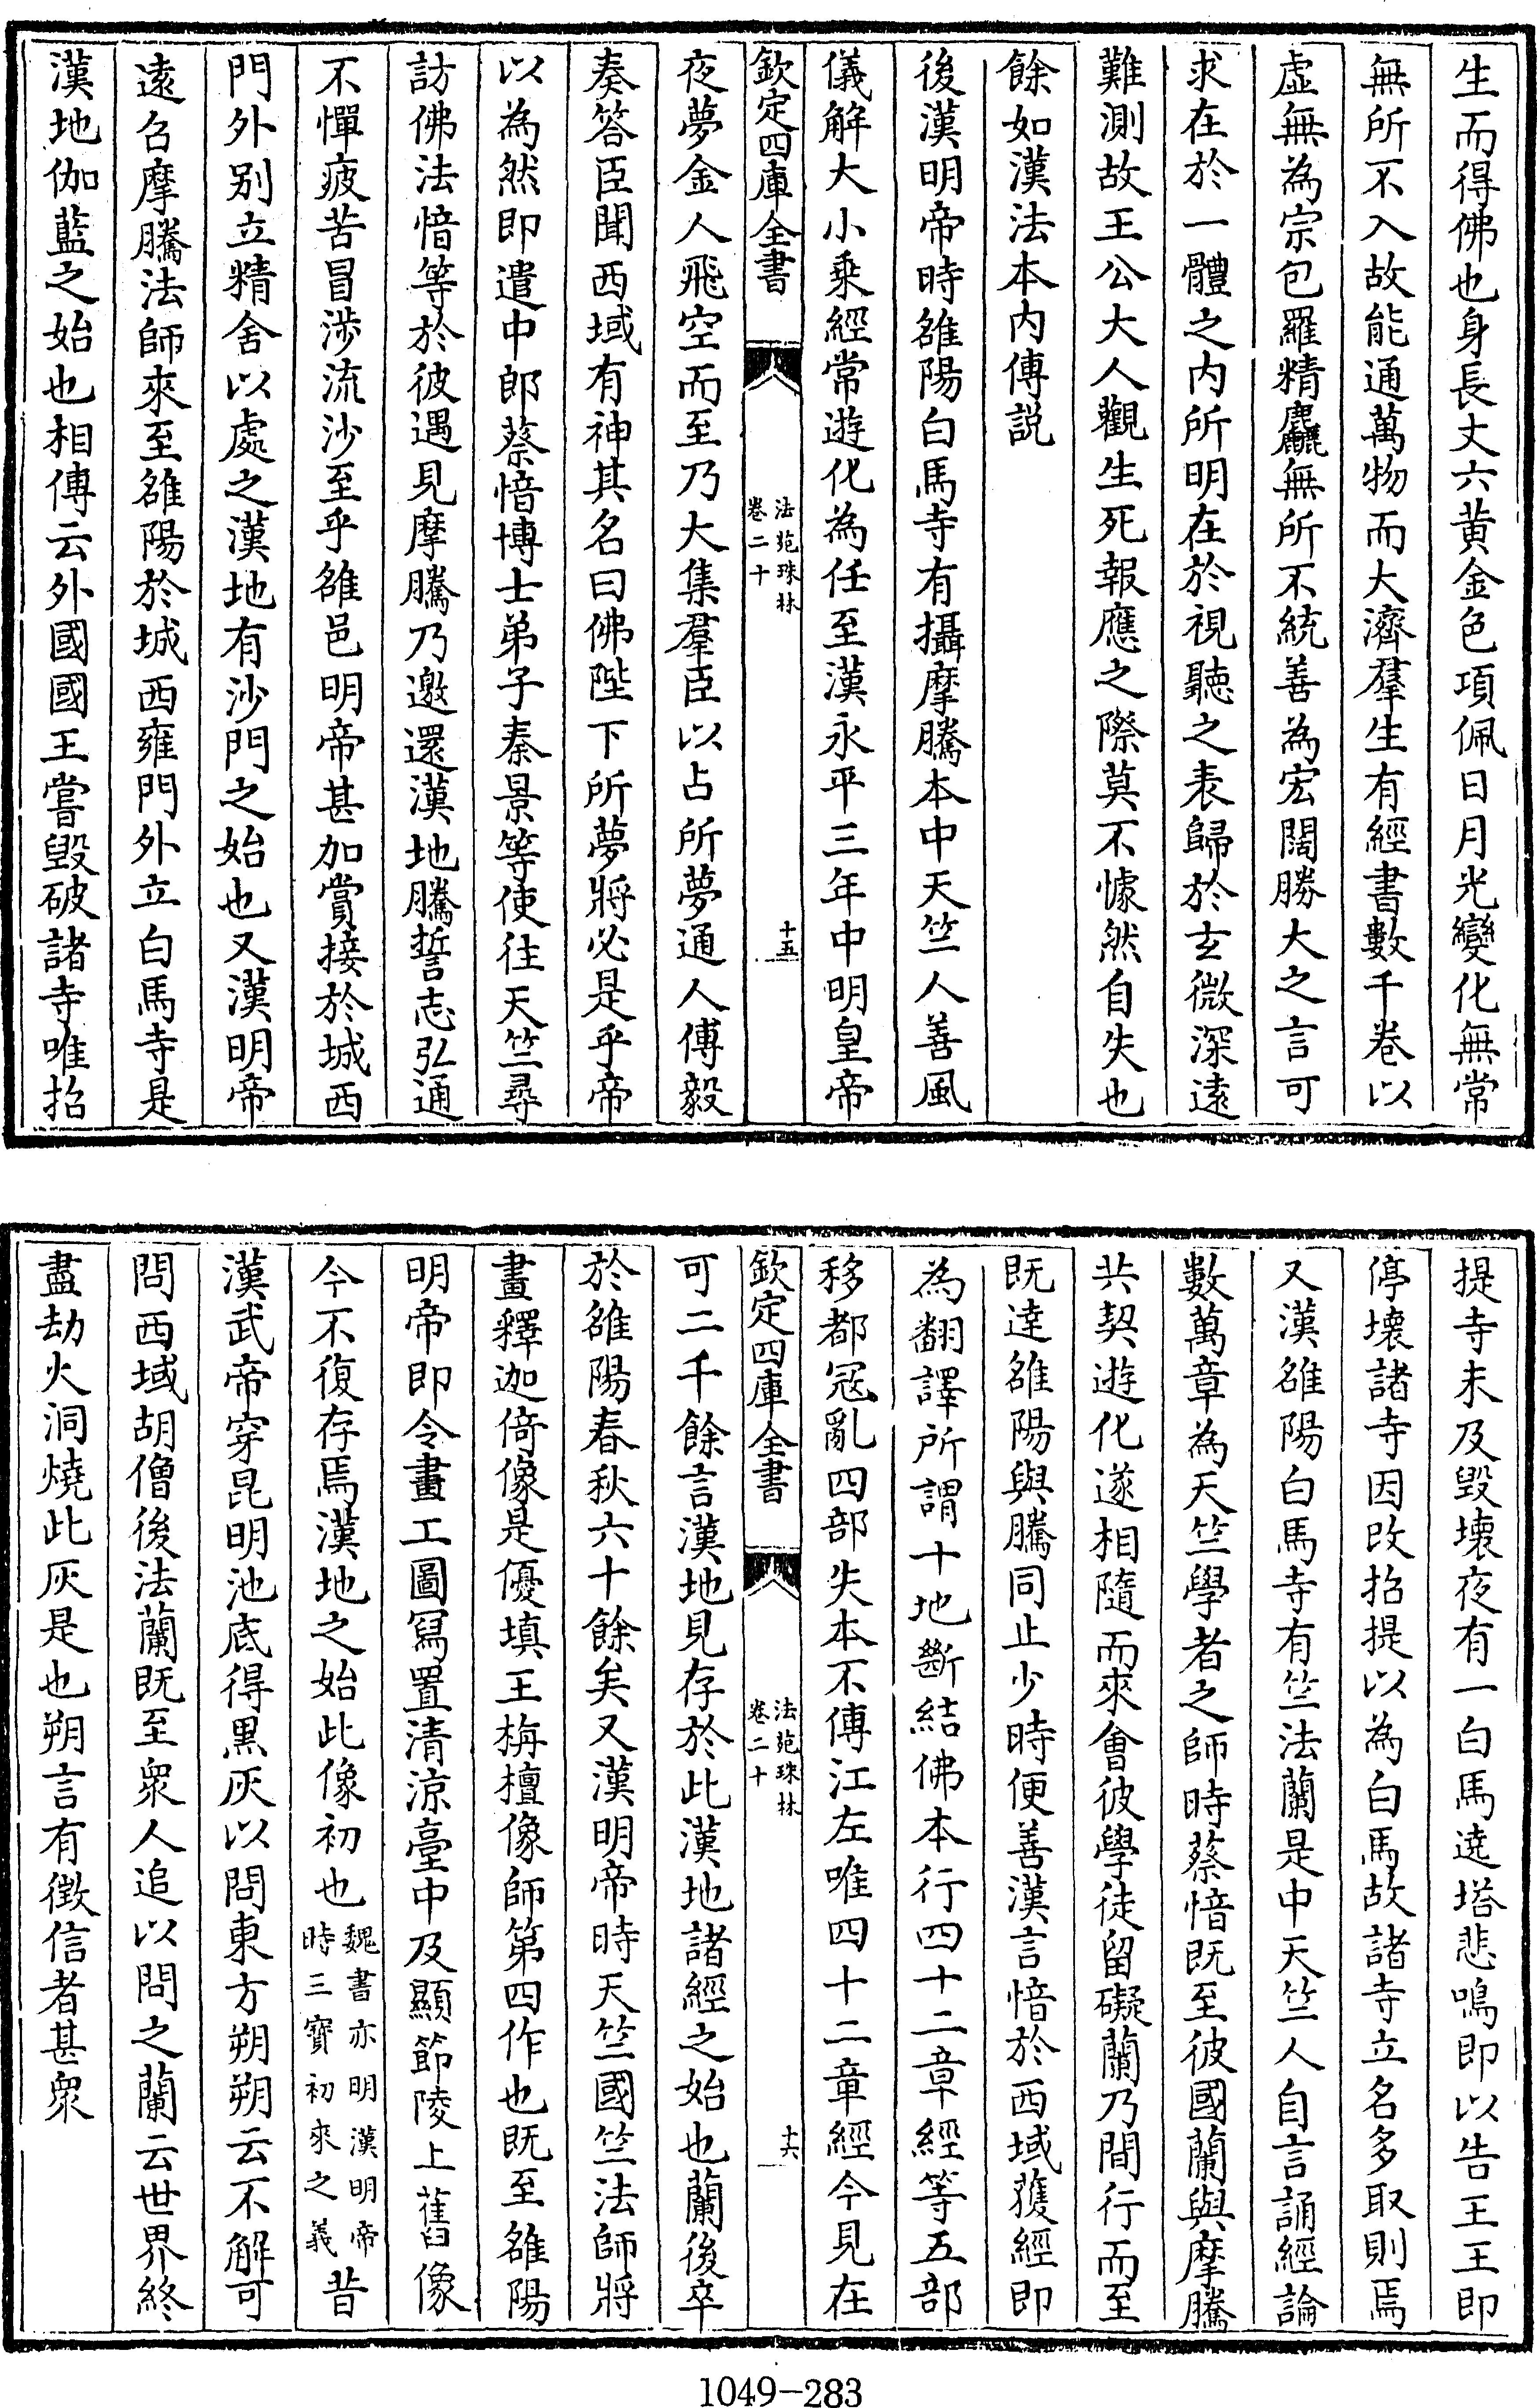 生而得佛也身長丈六黄金色項佩日月光變化無常
無所不入故能通萬物而大濟羣生有經書數千卷以
虛無為宗包羅精麤無所不統善為宏闊勝大之言可
求在於一體之内所明在於視聽之表歸於玄微深遠
難測故王公大人觀生死報應之際莫不懅然自失也
餘如漢法本内傳説
後漢明帝時雒陽白馬寺有攝摩騰本中天竺人善風
儀解大小乘經常遊化為任至漢永平三年中明皇帝
欽定四庫全書
法苑珠林
卷二十
十五
夜夢金人飛空而至乃大集羣臣以占所夢通人傅毅
奏答臣聞西域有神其名曰佛陛下所夢將必是乎帝
以為然即遣中郎蔡愔博士弟子秦景等使往天竺尋
訪佛法愔等於彼遇見摩騰乃邀還漢地騰誓志弘通
不憚疲苦冒涉流沙至乎雒邑明帝甚加賞接於城西
門外别立精舍以處之漢地有沙門之始也又漢明帝
遠召摩騰法師來至雒陽於城西雍門外立白馬寺是
漢地伽藍之始也相傳云外國國王嘗毀破諸寺唯招
提寺未及毀壞夜有一白馬遶塔悲鳴即以告王王即
停壞諸寺因改招提以為白馬故諸寺立名多取則焉
又漢雒陽白馬寺有竺法蘭是中天竺人自言誦經論
數萬章為天竺學者之師時蔡愔既至彼國蘭與摩騰
共契遊化遂相隨而來會彼學徒留礙蘭乃間行而至
既達雒陽與騰同止少時便善漢言愔於西域獲經即
為翻譯所謂十地斷結佛本行四十二章經等五部
移都冦亂四部失本不傳江左唯四十二章經今見在
欽定四庫全書
法苑珠林
卷二十
十六
可二千餘言漢地見存於此漢地諸經之始也蘭後卒
於雒陽春秋六十餘矣又漢明帝時天竺國竺法師將
畫釋迦倚像是優填王栴檀像師第四作也既至雒陽
明帝即令畫工圖寫置清涼臺中及顯節陵上舊像
今不復存焉漢地之始此像初也魏書亦明漢明帝時三寳初來之義昔
漢武帝穿昆明池底得黑灰以問東方朔朔云不解可
問西域胡僧後法蘭既至衆人追以問之蘭云世界終
盡劫火洞燒此灰是也朔言有徴信者甚衆
1049-283